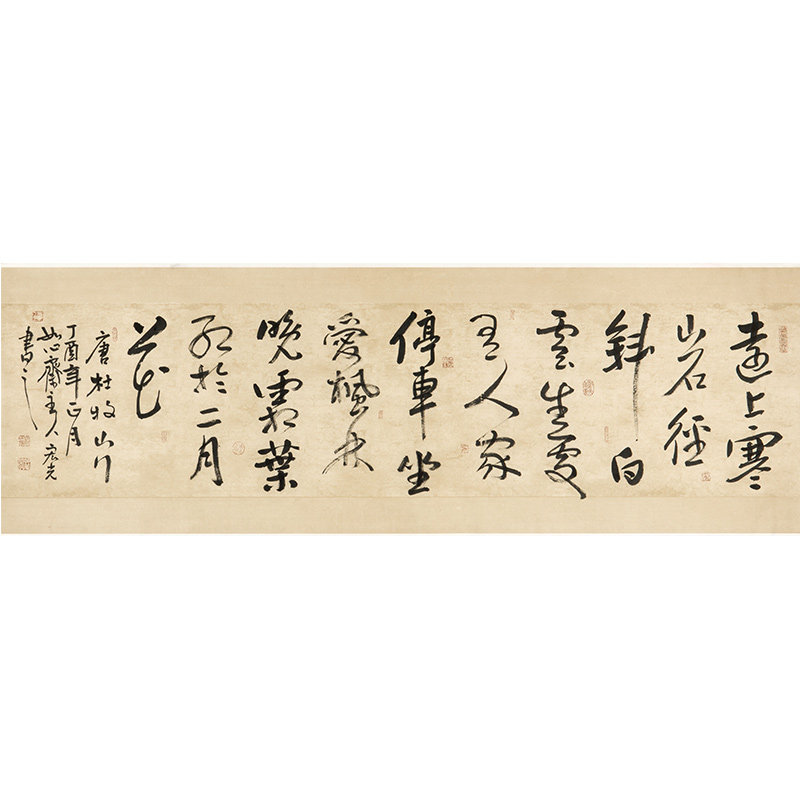 遠上寒
山石徑
斜白
雲生處
有人家
停車坐
愛楓林
晚霜葉
紅於二月
花
唐杜牧山行
丁酉年正月
恕齋主人宏光
書之